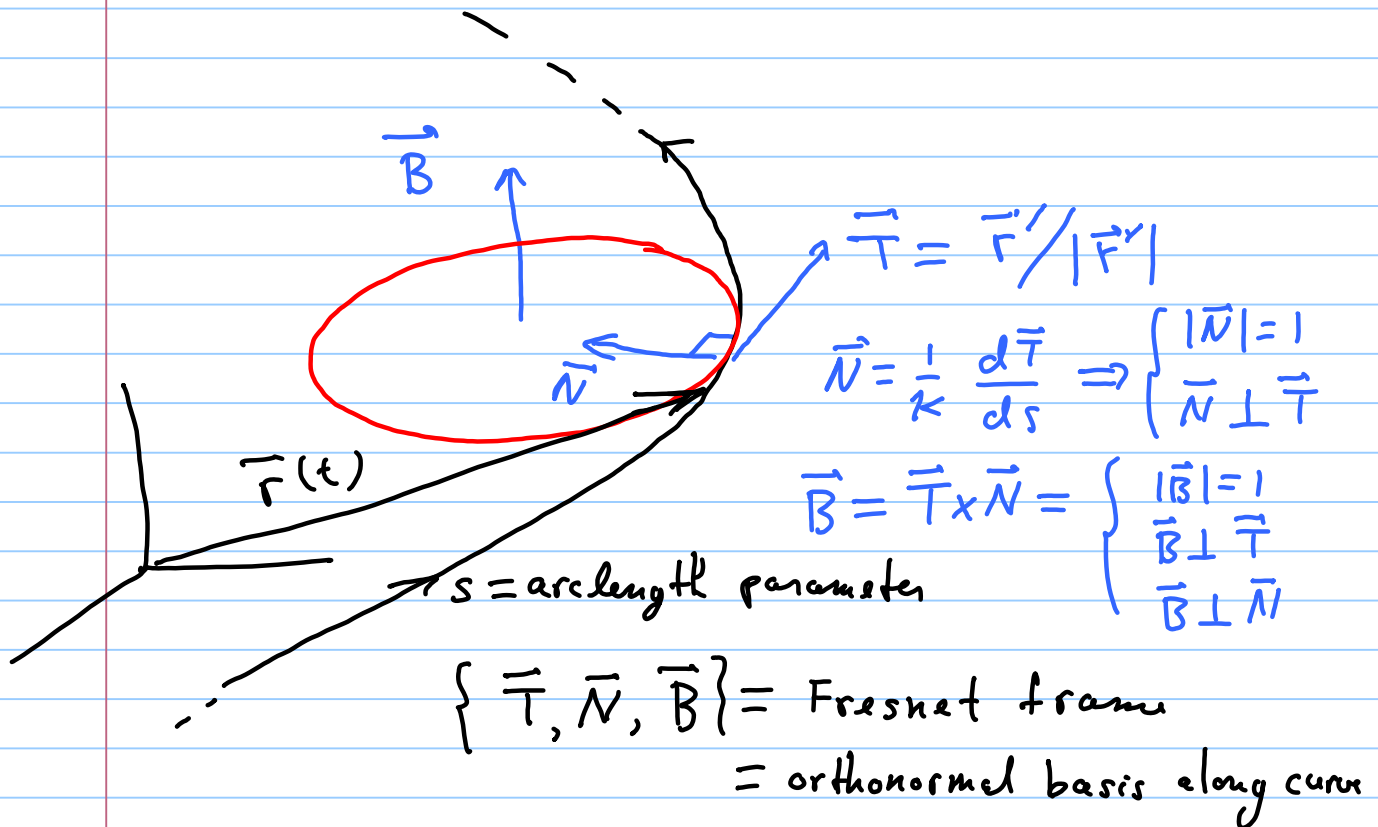 B⃗
T⃗ = r⃗′/|r⃗′|
N⃗ = 1/κ dT⃗/ds ⇒ { |N⃗| = 1
N⃗ ⊥ T⃗
N⃗
r⃗(t)
B⃗ = T⃗ × N⃗ = { |B⃗| = 1
B⃗ ⊥ T⃗
B⃗ ⊥ N⃗
s = arclength parameter
{ T⃗, N⃗, B⃗ } = Fresnet frame
= orthonormal basis along curve